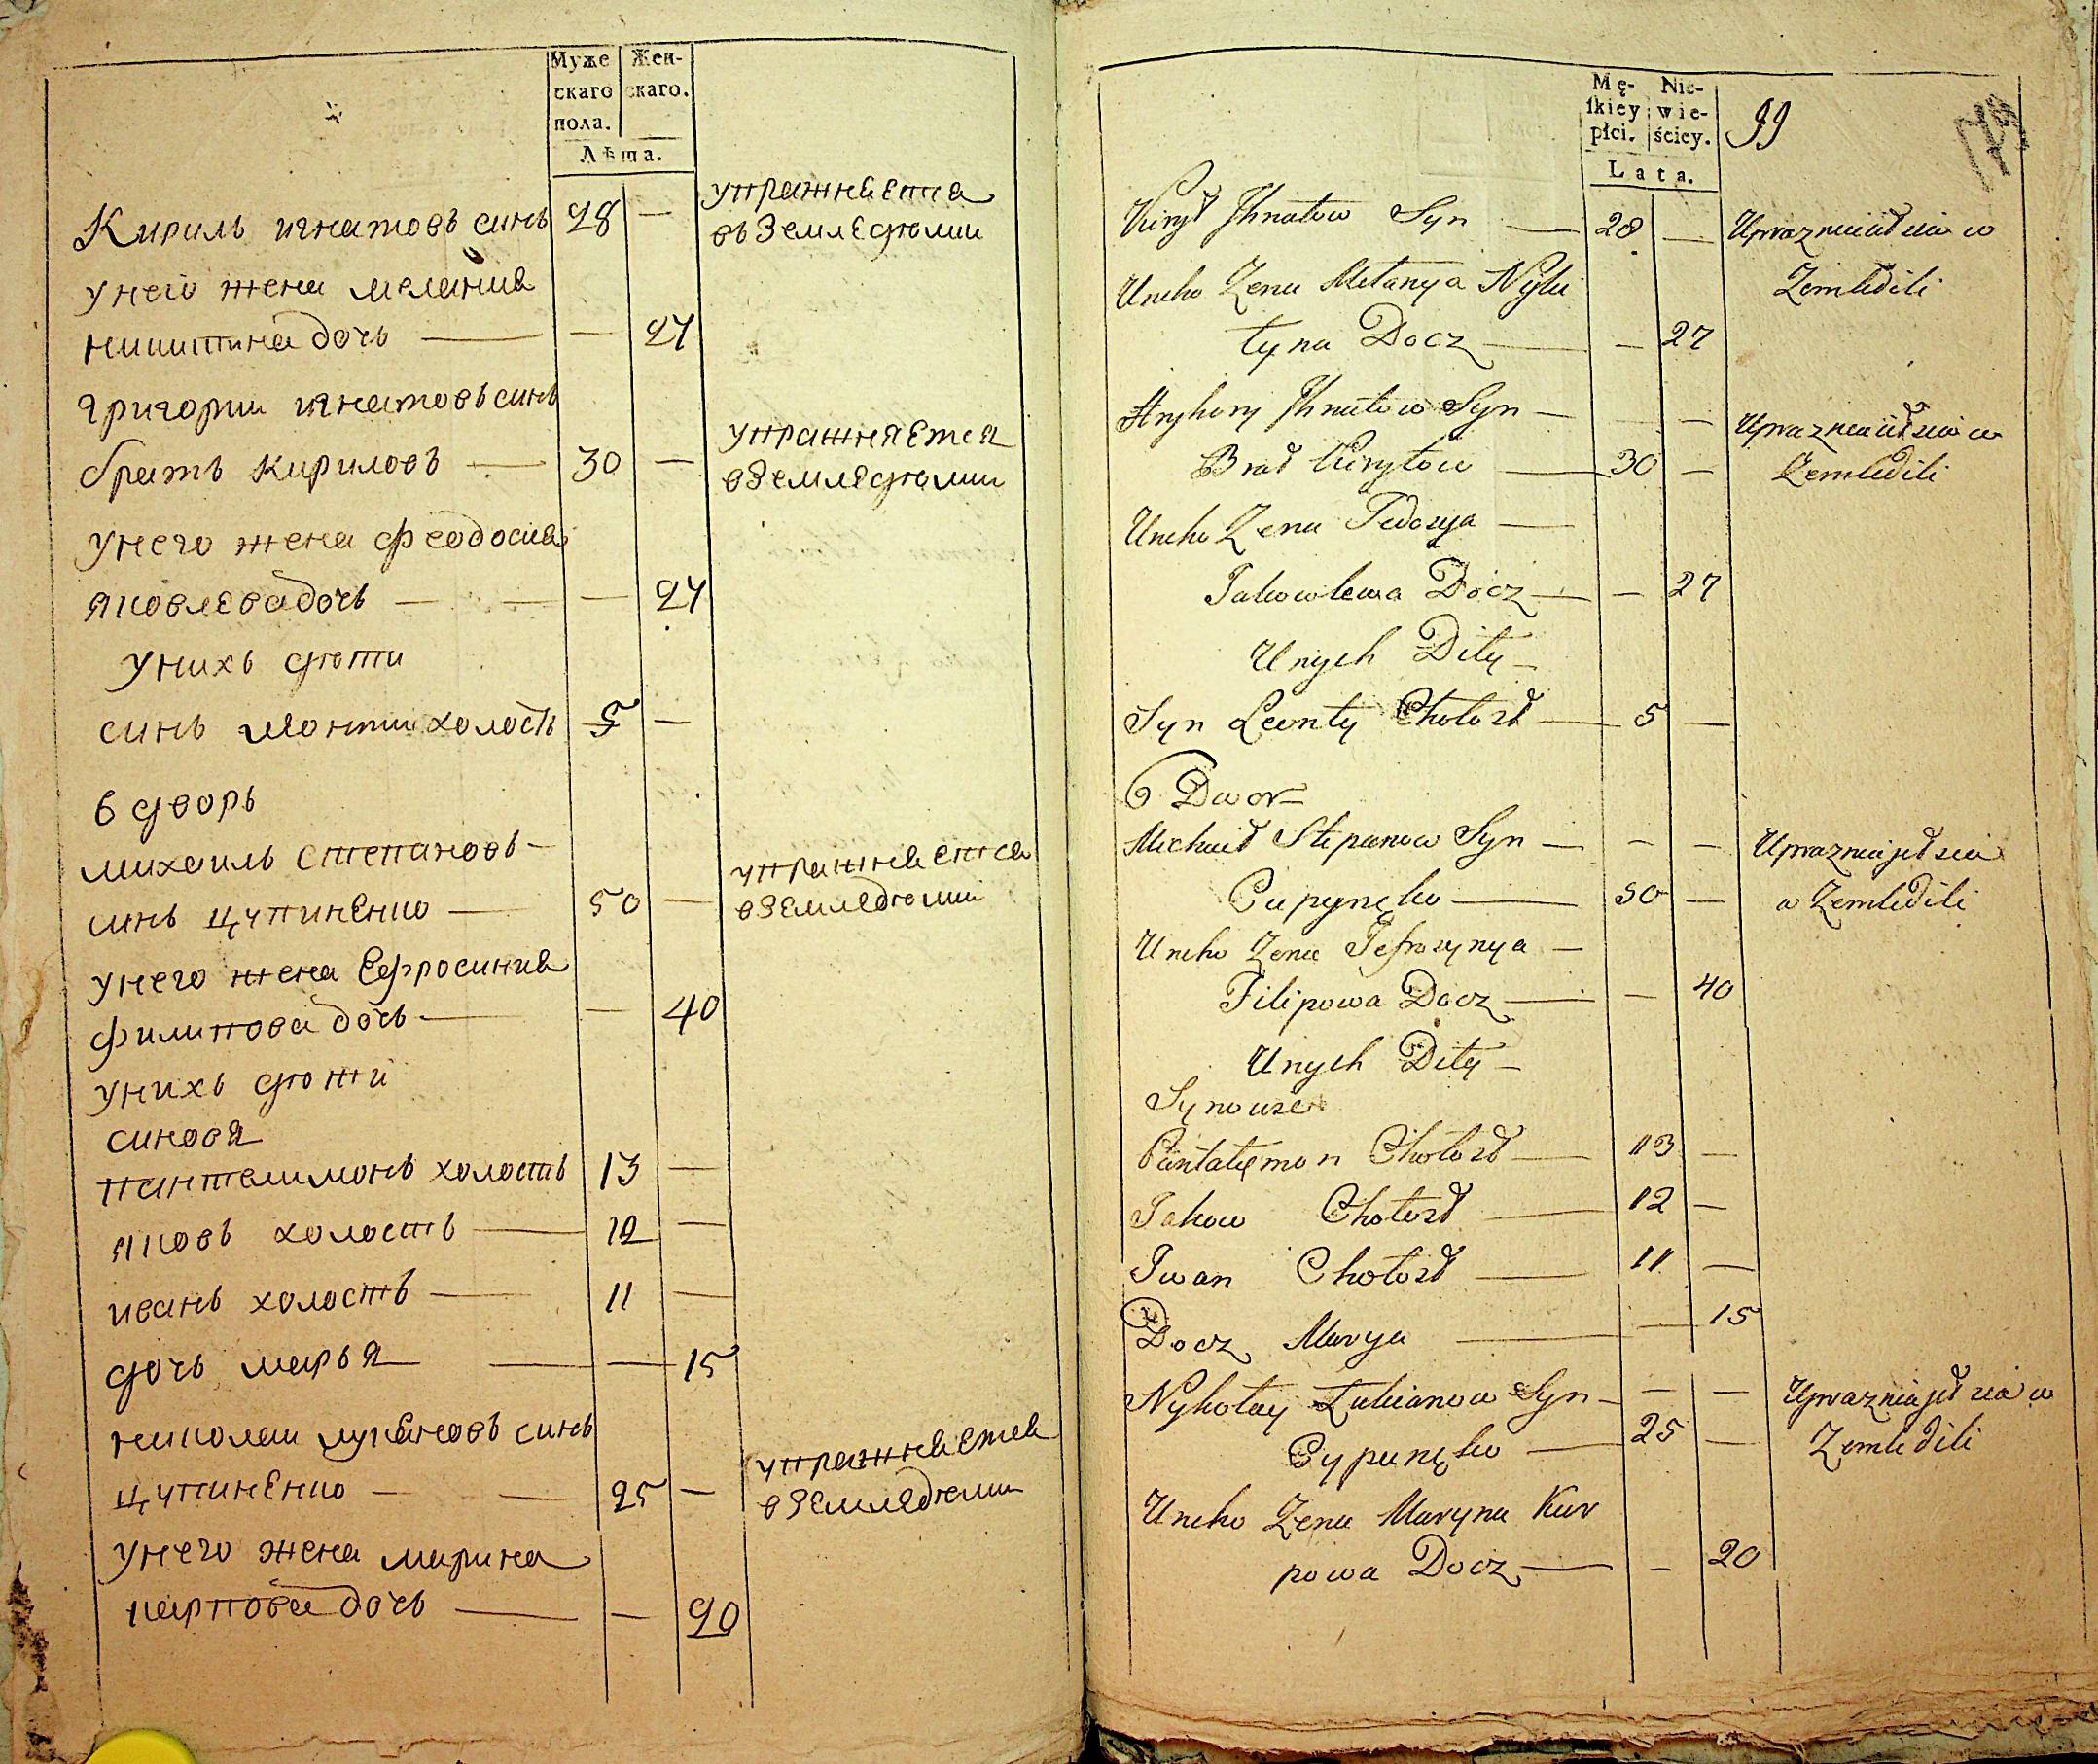 Муже
скаго
пола.
Жен-
скаго.
Лѣта.
Кирилъ игнатовъ синъ 28 —
упражняетца
въ Земледѣлии
унего жена мелания
никитина дочъ — — 27
григории игнатовъ синъ
братъ кириловъ — 30 —
упражняется
вЗемледѣлии
унего жена феодосия
яковлева дочъ — — 27
унихъ дѣти
синъ леонтии холостъ 5 —
6 дворъ
михаилъ степановъ —
синъ цупиненко — 50 —
упражняется
вЗемледѣлии
унего жена Ефросиния
филипова дочъ — — 40
унихъ дѣти
синовя
пантелимонъ холостъ 13 —
яковъ холостъ — 12 —
иванъ холостъ — 11 —
дочъ маръя — — 15
николаи лукяновъ синъ
цупиненко — 25 —
упражняется
вЗемледѣлии
унего жена марина
карпова дочъ — — 20
Mę-
skiey
płci.
Nie-
wie-
ściey.
Lata.
99
Kirył Ihnatow Syn — 28 — Uprazniaiut sia w
Uneho Zena Mełanya Nyki Zemledili
tyna Docz — — 27
Hryhory Ihnatow Syn — — — Uprazniaiut sia w
Brat Kiryłow — 30 — Zemledili
Uneho Zena Fedosya —
Jakowlewa Docz — — 27
Unych Dity —
Syn Leonty Chołost — 5 —
6 Dwor
Michaił Stepanow Syn — — — Uprazniajet sia
Cupynęko — 50 — w Zemledili
Uneho Zena Jefrozynya —
Filipowa Docz — — 40
Unych Dity —
Synowe
Pantałemon Chołost — 13 —
Jakow Chołost — 12 —
Iwan Chołost — 11 —
Docz Marya — — 15
Nykołay Łukianow Syn — — — Uprazniajet sia w
Cypunęko — 25 — Zemledili
Uneho Zena Maryna Kar
powa Docz — — 20